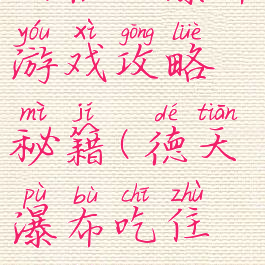 yóu xì gōng lüè
游戏攻略
mì jí dé tiān
秘籍(德天
pù bù chī zhù
瀑布吃住